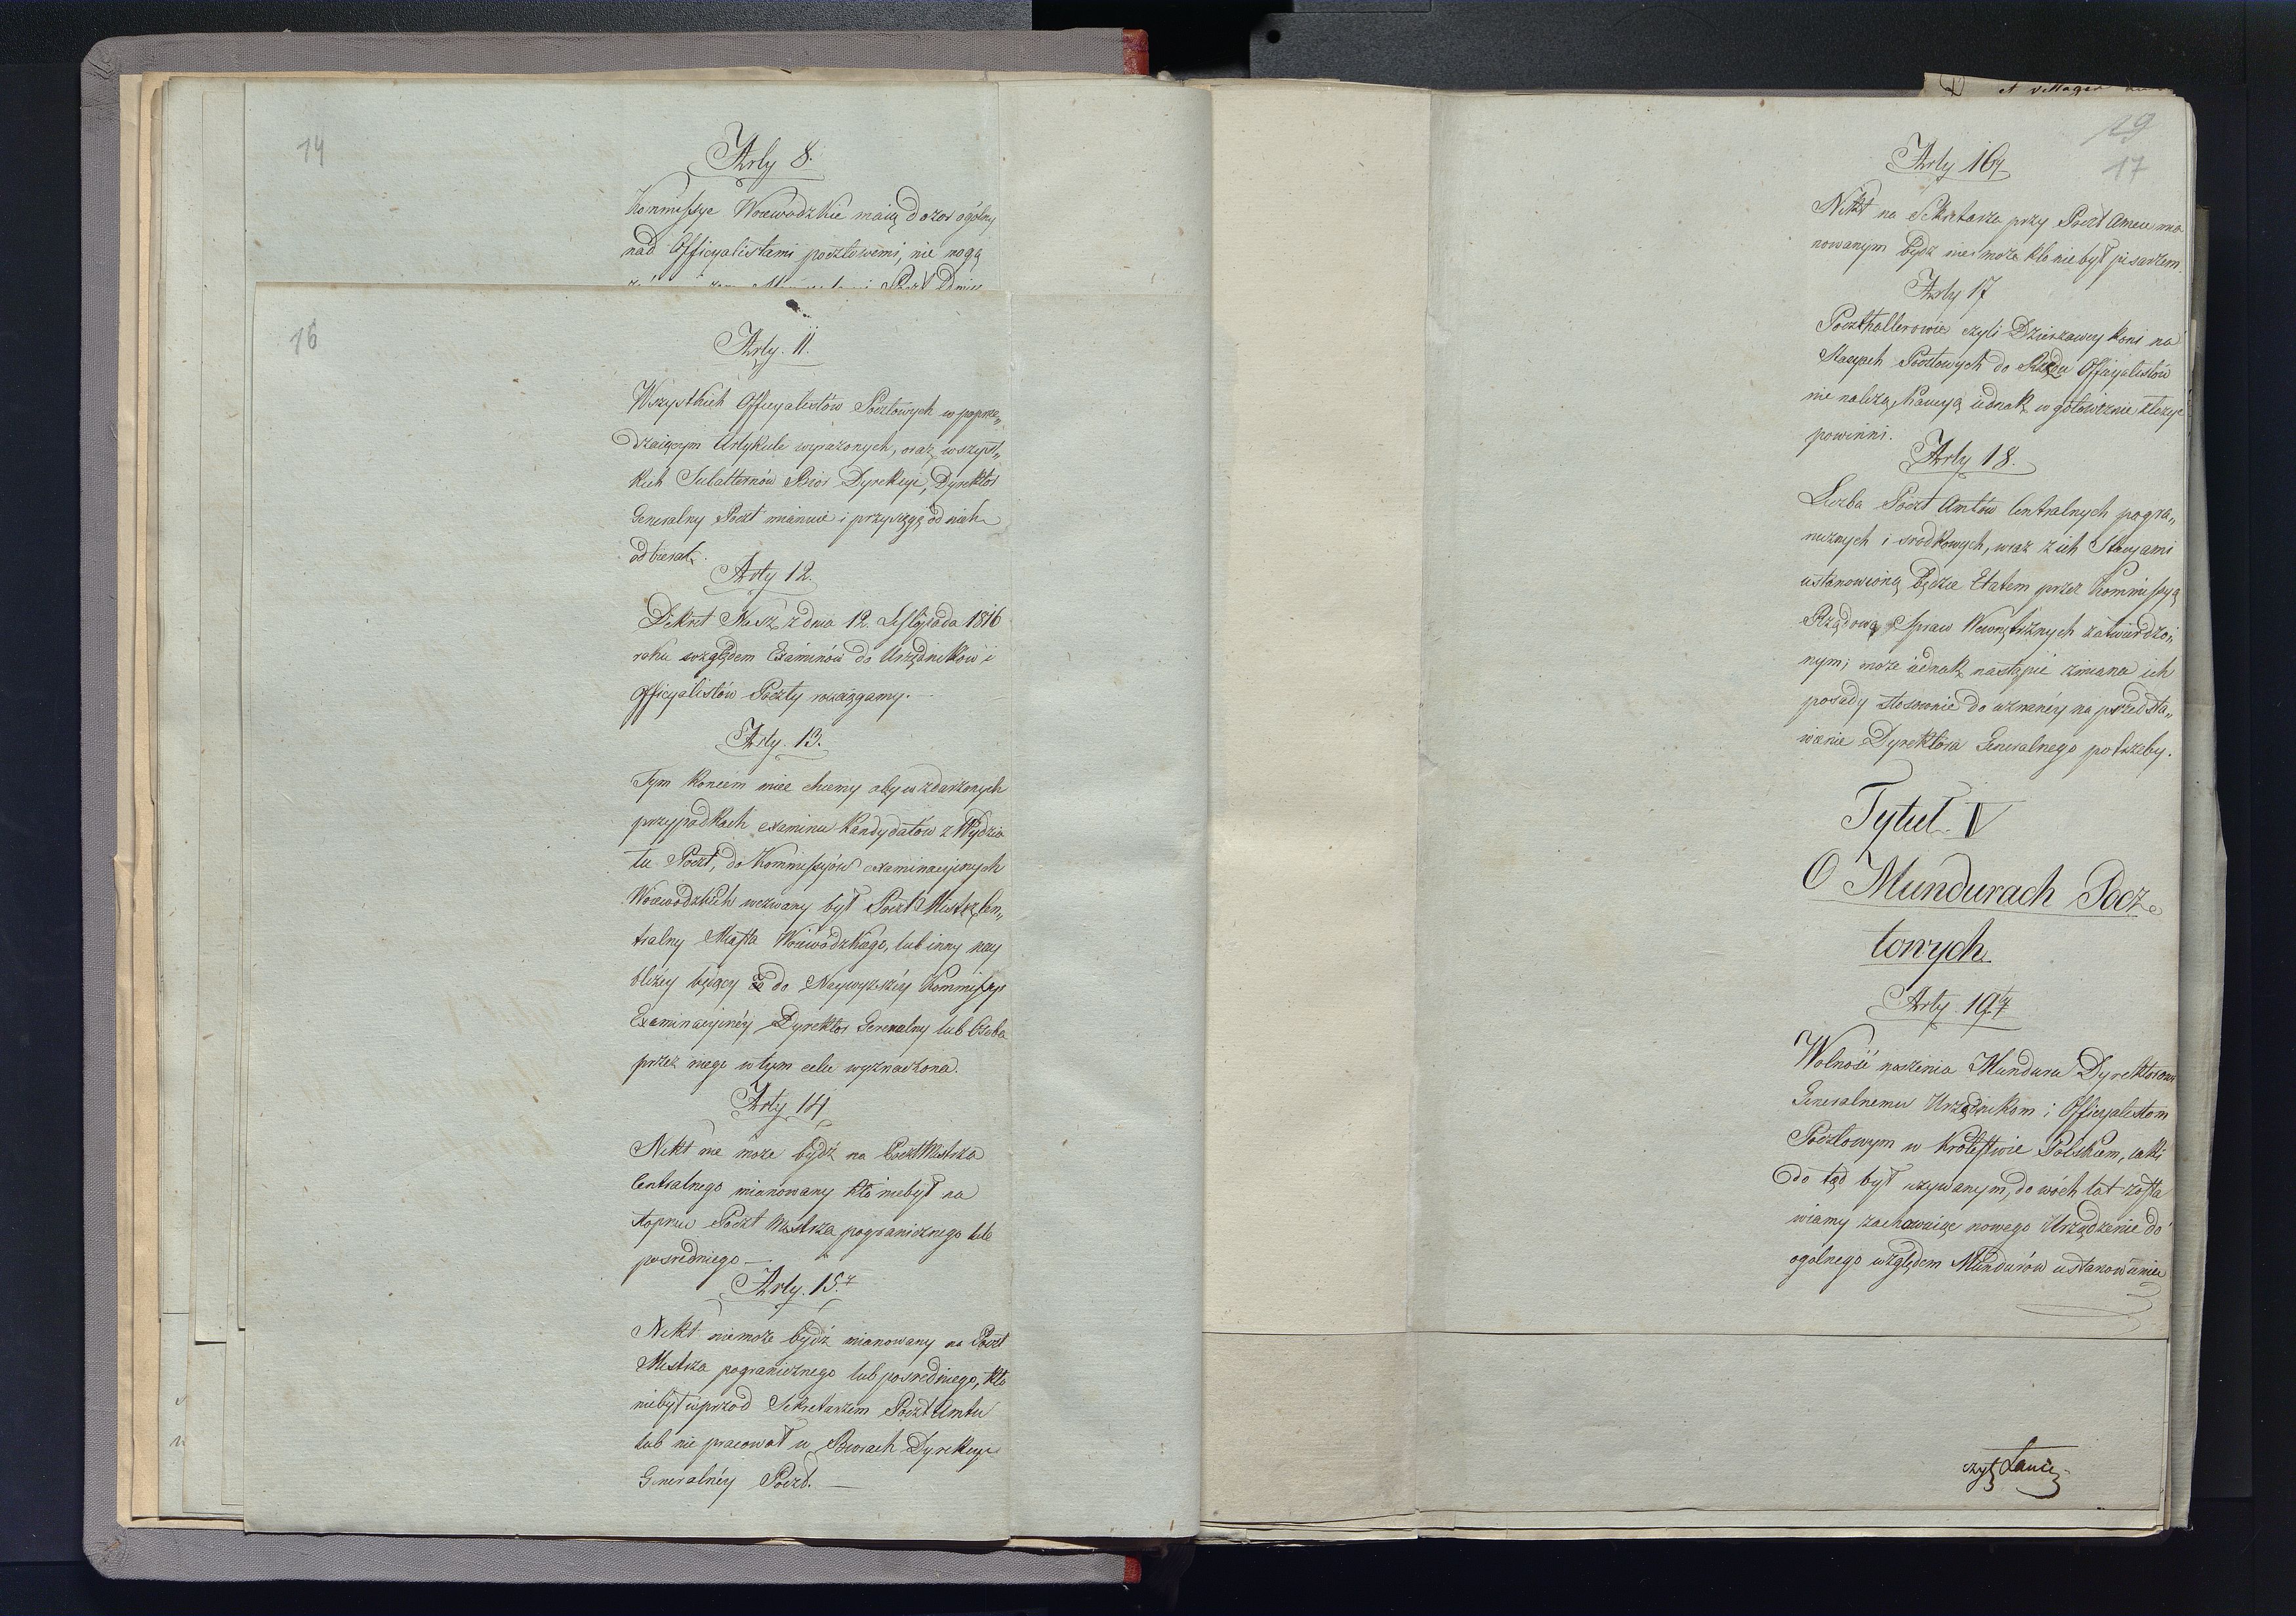 14
Arty 8.
Kommissye Woiewodzkie maią dozor ogólny
nad Officyalistami pocztowemi, nie mogą
16
Arty. 11.
Wszystkich Officyalistów Pocztowych w poprze„
dzaiącym Artykule wyrażonych, oraz wszyst„
kich Subalternów Biór Dyrekcyi, Dyrektor
Generalny Poczt mianuie i przysięgę od nich
odbierać.
Arty 12.
Dekret Nasz z dnia 12. Listopada 1816
roku względem Examinów do Urzędników i
Officyalistów Poczty rosciągamy.
Arty. 13.
Tym koncem miec chcemy aby w zdarzonych
przypadkach examinu kandydatów z Wydzia
łu Poczt, do Kommissyów examinacyjnych
Woiewodzkich wezwany był Poczt Mistrz Cen„
tralny Miasta Woiewódzkiego, lub inny nay
bliżey będący do Naywyższéy Kommissyi
Examinacyinéy Dyrektor Generalny lub Osoba
przez niego w tym celu wyznaczona.
Arty 14
Nikt nie może bydź na PocztMistrza
Centralnego mianowany kto niebył na
stopniu Poczt Mistrza pogranicznego lub
posredniego —
Arty. 15.
Nikt niemoże bydź mianowany na Poczt
Mistrza pogranicznego lub posredniego, kto
niebył wprzod Sekretarzem PocztAmtu
lub nie pracował w Biorach Dyrekcyi
Generalnéy Poczt. —
19
17
Arty 16
Nikt na Sekretarza przy Poczt Amcie mia
nowanym bydz nie może kto niebył pisarzem.
Arty 17
Poczthalterowie czyli Dzierzawcy koni na
Stacyach Pocztowych do Rzędu Officyalistów
nie należą, kaucyą iednak w gotowiznie złożyć
powinni.
Arty 18.
Liczba Poczt Amtów Centralnych pogra„
nicznych i srodkowych, wraz z ich Stacyami
ustanowioną będzie Etatem przez Kommissyą
Rządową Spraw Wewnętrznych zatwierdzo„
nym; może iednak nastąpić zmiana ich
posady stosownie do uznanéy na przedsta„
wienie Dyrektora Generalnego potrzeby.
Tytuł. V
O Mundurach Pocz
towych.
Arty. 19
Wolność noszenia Munduru Dyrektorowi
Generalnemu Urzędnikom i Officyalistom
Pocztowym w Królestwie Polskiem, iaki
do tąd był używanym, do wóch lat zosta
wiamy zachowuiąc nowego Urządzenie do
ogólnego względem Mundurów ustanowienia